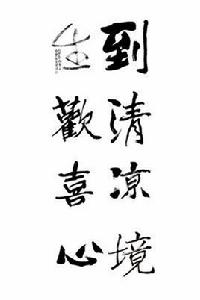 到清凉境
生歡喜心